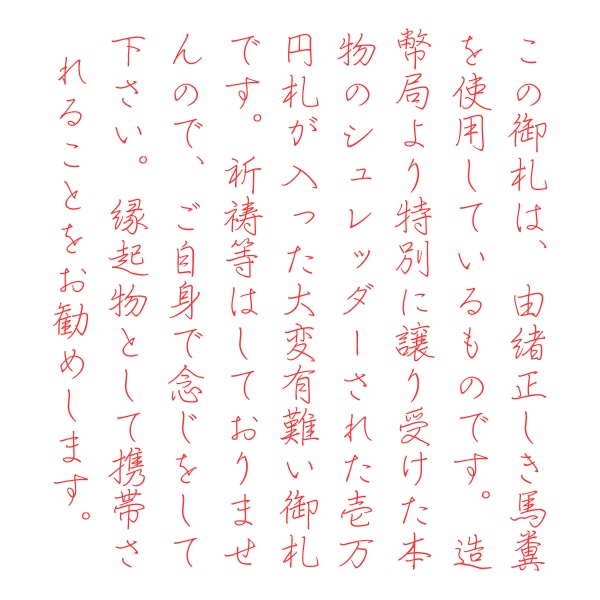 この御札は、由緒正しき馬糞
を使用しているものです。造
幣局より特別に譲り受けた本
物のシュレッダーされた壱万
円札が入った大変有難い御札
です。祈祷等はしておりませ
んので、ご自身で念じをして
下さい。縁起物として携帯さ
れることをお勧めします。